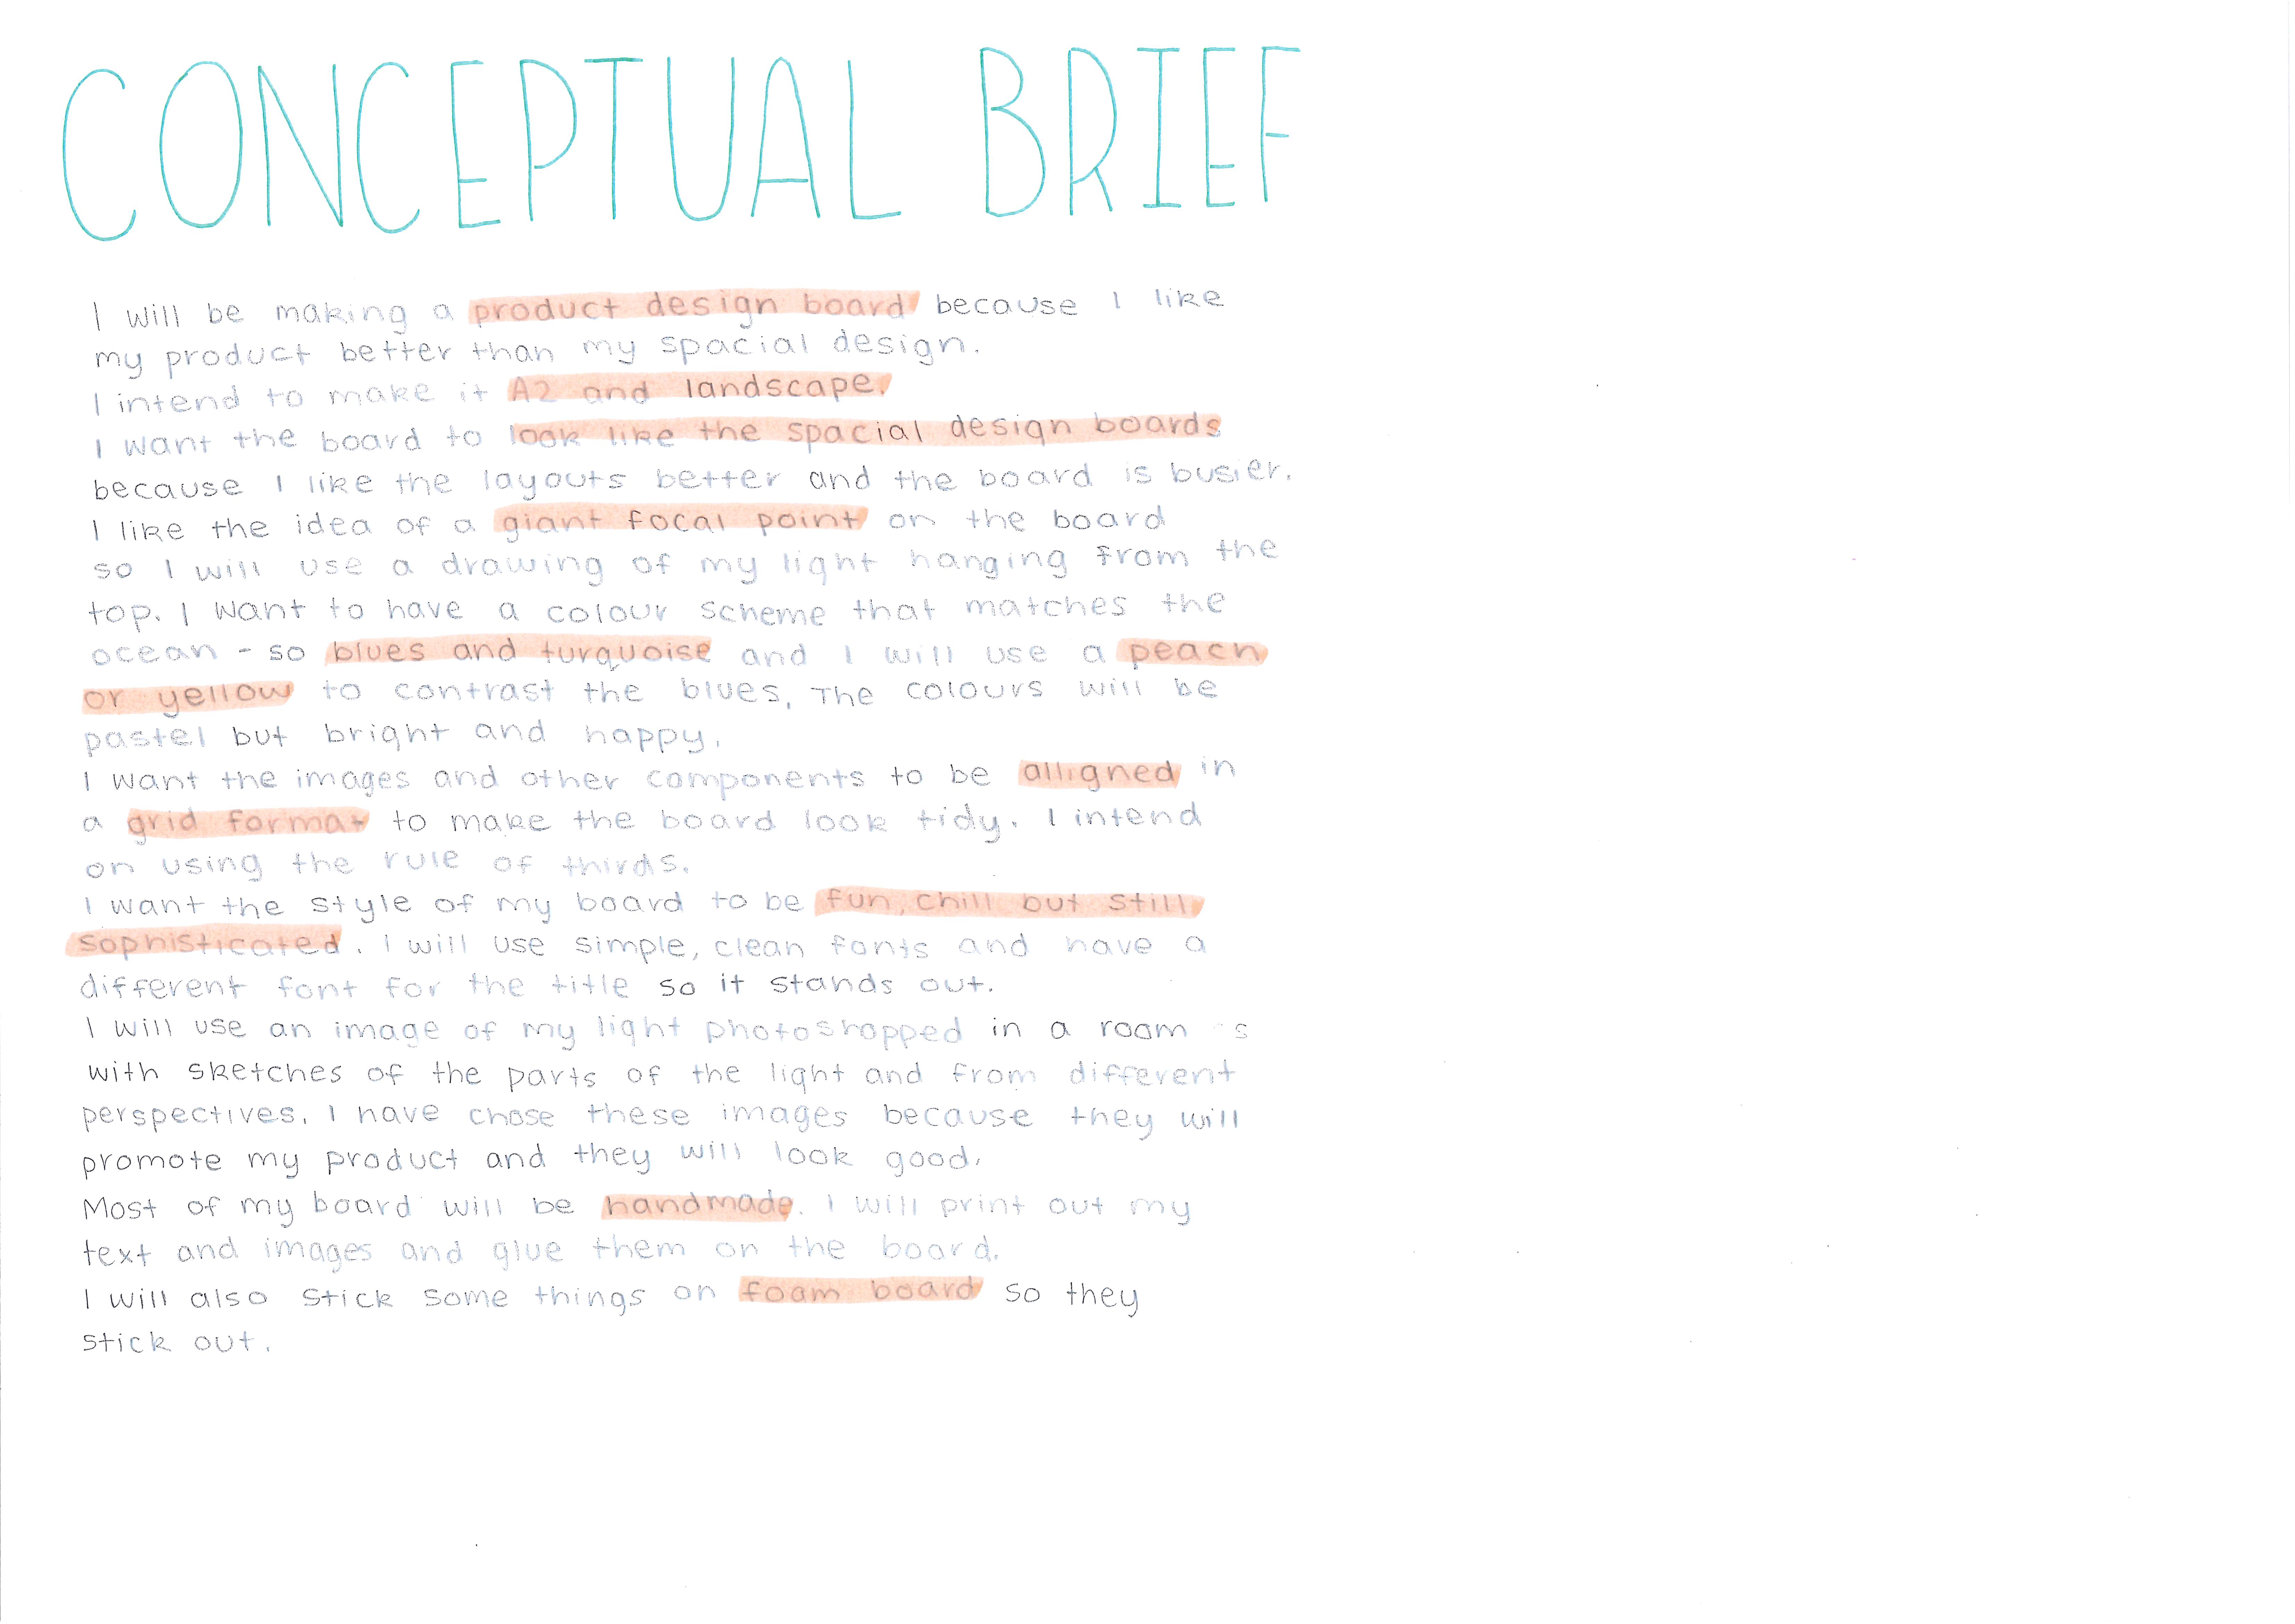 CONCEPTUAL BRIEF
I will be making a product design board because I like
my product better than my spacial design.
I intend to make it A2 and landscape.
I want the board to look like the spacial design boards
because I like the layouts better and the board is busier.
I like the idea of a giant focal point on the board
so I will use a drawing of my light hanging from the
top. I want to have a colour scheme that matches the
ocean - so blues and turquoise and I will use a peach
or yellow to contrast the blues. The colours will be
pastel but bright and happy.
I want the images and other components to be alligned in
a grid format to make the board look tidy. I intend
on using the rule of thirds.
I want the style of my board to be fun, chill but still
sophisticated. I will use simple, clean fonts and have a
different font for the title so it stands out.
I will use an image of my light photoshopped in a room s
with sketches of the parts of the light and from different
perspectives. I have chose these images because they will
promote my product and they will look good.
Most of my board will be handmade. I will print out my
text and images and glue them on the board.
I will also stick some things on foam board so they
stick out.